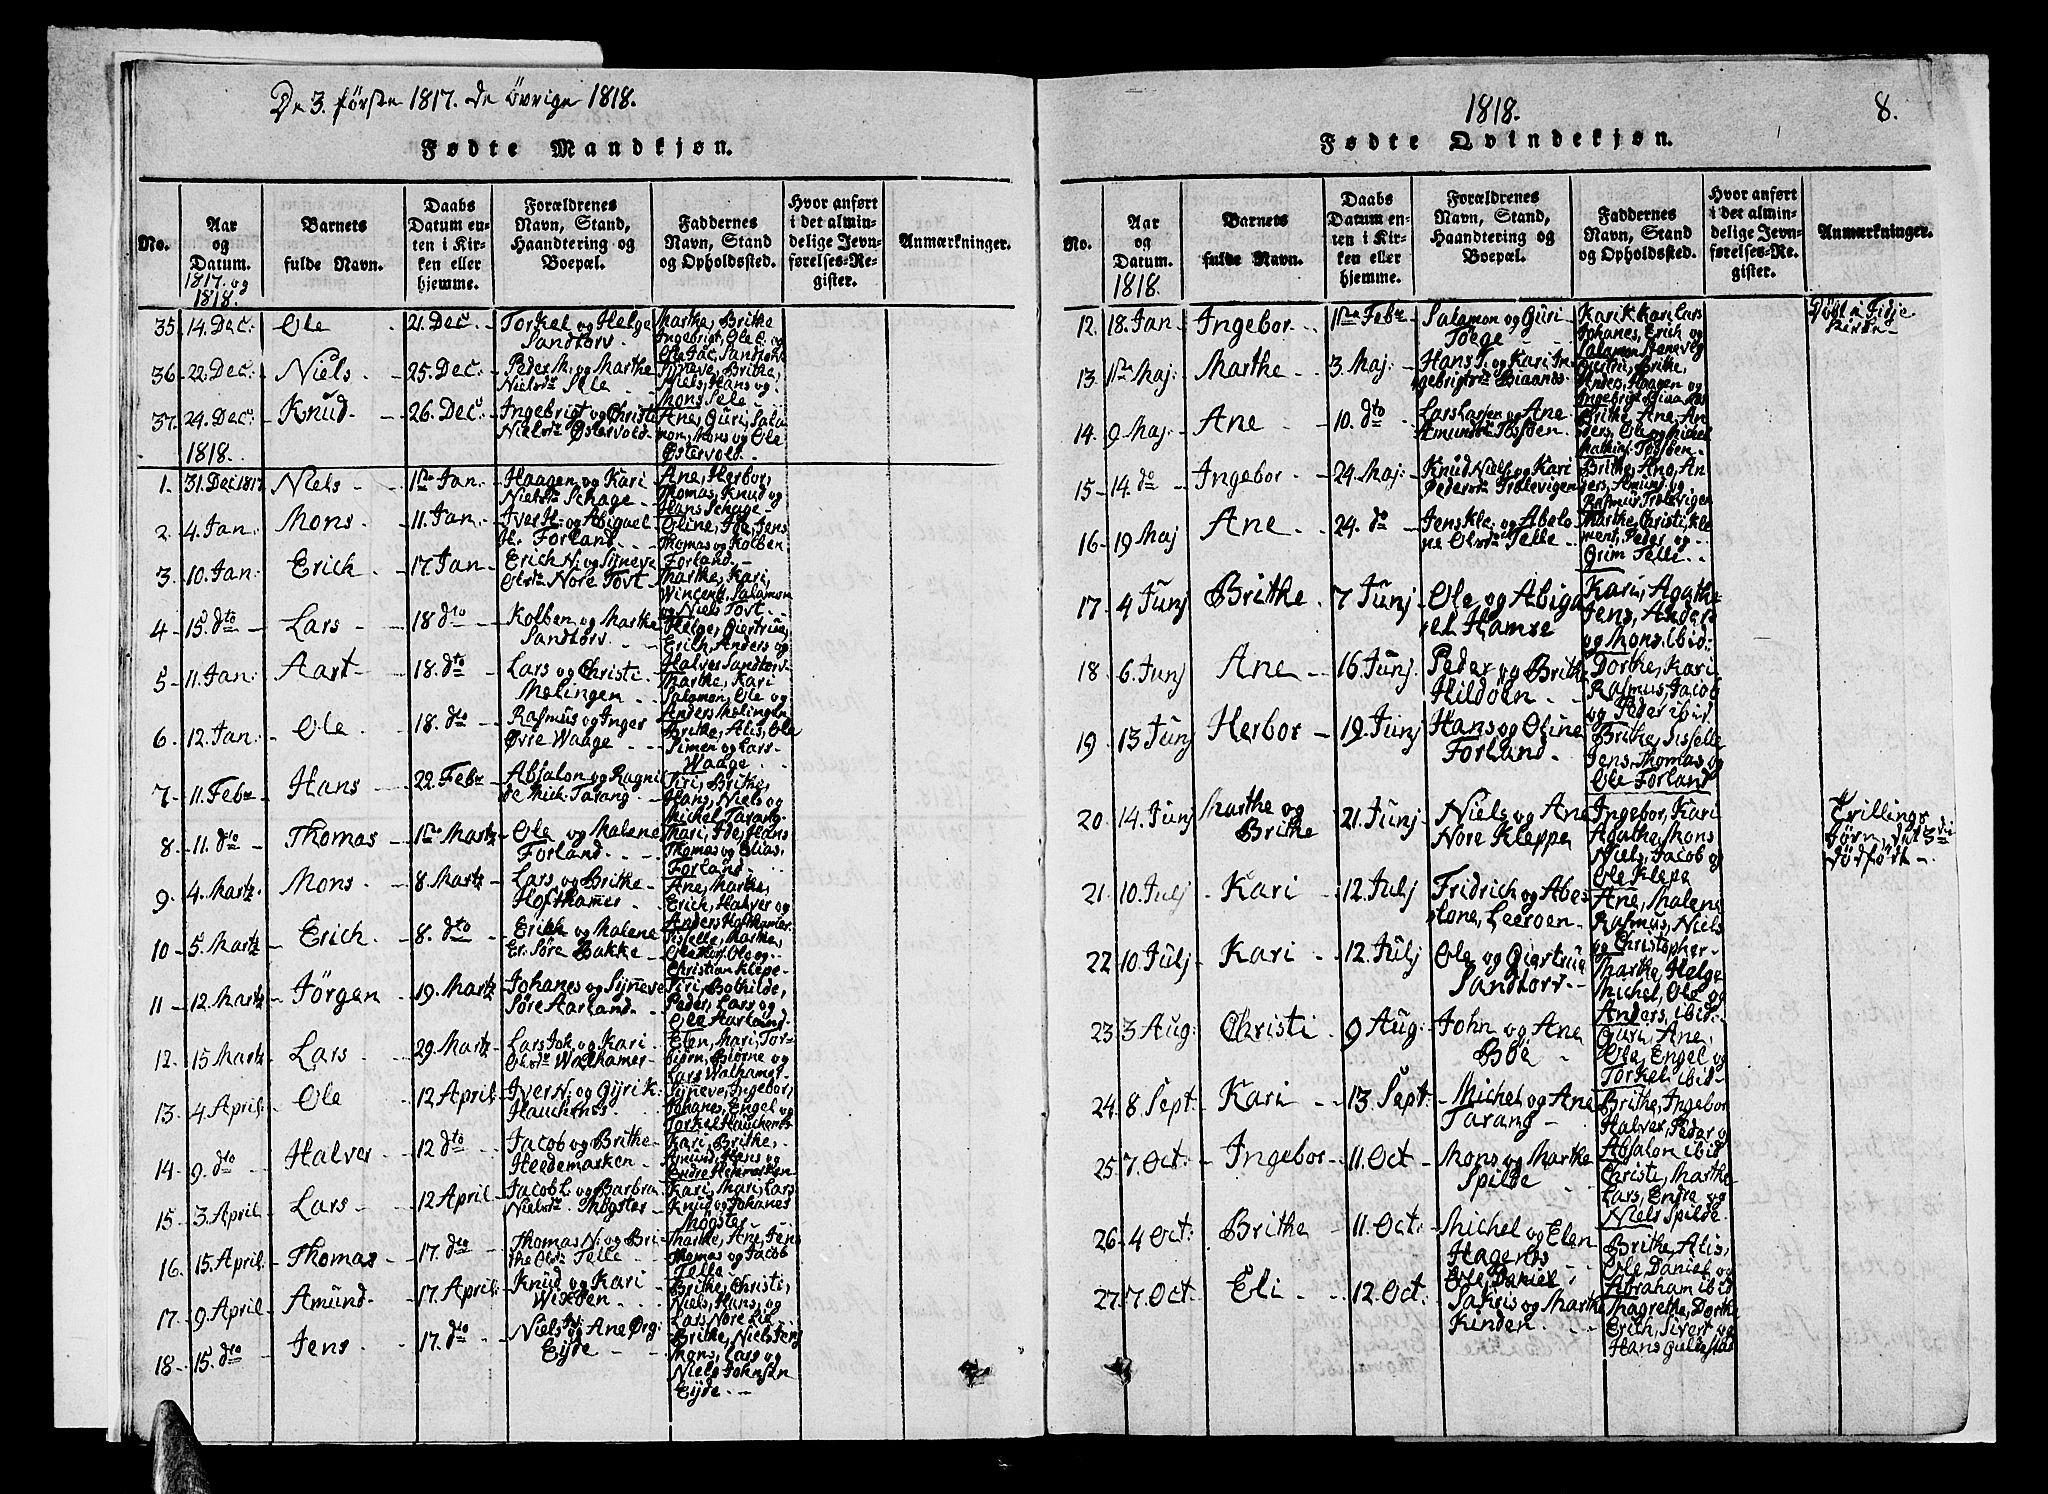 De 3. første 1817. de övrige 1818.
Fødte Mandkjøn.
No.
Aar og Datum. 1817. og 1818.
Barnets fulde Navn.
Daabs Datum enten i Kirken eller hjemme.
Forældrenes Navn, Stand, Haandtering og Boepæl.
Faddernes Navn, Stand og Opholdssted.
Hvor anført i det almindelige Jevnførelses-Register.
Anmærkninger.
35 14. Dec: Ole 21. Dec: Torkel og Helge Sandtorv. Marthe, Brithe Ingebrigt, Ole E. og Ole Jac. Sandtorv
36 22. Dec: Niels 25. Dec: Peder M. og Marthe Nielsdr Sele Synneve, Brithe, Niels, Hans og Mons Sele
37. 24. Dec: Knud 26. Dec: Ingebrigt og Christi Nielsdr Østervold. Ane, Guri, Salamon, Mons og Ole Østervold.
1818.
1. 31. Dec 1817 Niels 1ste Jan: Haagen og Kari Nielsdr Schage Ane, Herbor, Thomas, Knud og Hans Schage
2. 4. Jan: Mons 11. Jan: Iver H. og Abigael H. Forland Oline, Ide, Jens Thomas og Kolben Forland.
3. 10. Jan: Erich 17. Jan Erich N. og Synneve Olsdr Nore Tovt Marthe, Kari, Vincent, Salamon og Niels Tovt.
4 15. dto Lars 18 dto Kolben og Marthe Sandtorv. Helge, Giertrue, Erich, Anders og Halver Sandtorv
5 11. Jan: Aart 18. dto Lars og Christi Melingen Marthe, Kari Salamon, Ole og Anders Melingen
6. 12. Jan: Ole 18. dto Rasmus og Inger Øvre Waage Brithe, Alis, Ole Simen og Lars Waage
7 11. Febr Hans 22. Febr Absalon og Ragnilde Mich. Tarang Siri, Brithe, Hans, Niels og Michel Tarang
8. 11. dto Thomas 1ste Martz Ole og Malene Forland Mari, Ide, Hans Thomas og Elias, Forland
9. 4. Martz. Mons 8. Martz Lars og Brithe Hofthamer Ane, Marthe, Erich, Halver og Anders Hofthamer
10 5. Martz Erich. 8. dto Erich og Malene Er. Søre Bakke Sisselle, Marthe, Ole og Christian Klepe
11 12. Martz Jörgen 19. Martz Johanes og Synneve Søre Aarland Siri, Bothilde, Peder, Lars og Ole Aarland
12. 15 Martz Lars 29. Martz Lars Joh. og Kari Olsdr Walhamer Elen, Mari, Torbiörn, Biörne og Lars Walhamer
13. 4. April. Ole 12 April Iver N. og Gyri K: Hauchenes Synneve, Ingebor, Johanes, Engel og Torkel Hauchenes
14 9. dto Halver 12 dto Jacob og Brithe Heedemarken Kari, Brithe, Amund, Hans og Endre Hemarken
15 3. April Lars 12 April Jacob L. og Barbra Nielsdr. Møgster Kari, Mari, Lars Knud og Johanes Møgster
16. 15. April. Thomas 17. dto Thomas N. og Brithe Olsdr Telle Marthe, Ane, Jens Thomas og Jacob Telle
17. 9 April Amund 17. April Knud og Kari Wixøen Brithe, Christi, Niels, Hans, og Lars Nore Lie
18. 15. dto Jens 17. dto Niels og Ane Ørg: Eyde Brithe, Niels Jens Mons, Lars og Niels Johnsen Eyde
1818.
8.
Fødte Qvindekjøn.
No.
Aar og Datum. 1818.
Barnets fulde Navn.
Daabs Datum enten i Kirken eller hjemme.
Forældrenes Navn, Stand, Haandtering og Boepæl.
Faddernes Navn, Stand og Opholdssted.
Hvor anført i det almindelige Jevnførelses-Register.
Anmærkninger.
12. 18. Jan Ingebor 1ste Febr Salamon og Guri Toege Kari K. Kari Lars Johanes, Erich og Salamon
13. 1ste Maj: Marthe 3. Maj: Hans J. og Kari Ingebrigtsdr Biaanes Giertrue, Brithe, Anders, Haagen og Ingebrigt
14. 9 Maj Ane 10. dto Lars Larsen og Ane Amundsdr Tøsøen Brithe, Ane, Anders, Ole og Michel
15 14. do Ingebor 24 Maj: Knud Niels og Kari Pedersdr Trolevigen Brithe, Ane, Anders, Amund og Rasmus Trolevigen
16. 19 Maj Ane 24. do Jens Kle. og Abelone Olsdr Telle Marthe, Christi, Klement, Peder og Grim Telle
17. 4 Junj Brithe 7 Junj Ole og Abigael Hamre Kari, Agathe Jens, Anders og Mons ibid:
18 6. Junj Ane 16 Junj Peder og Brithe Hildøen Dorthe, Kari Rasmus, Jacob og Peder ibid
19 13 Junj Herbor 19. Junj Hans og Oline Forland Brithe, Sisselle Jens, Thomas og Ole Forland
20. 14. Junj Marthe og Brithe 21. Junj Niels og Ane Nore Kleppe Ingebor, Kari Agathe, Mons Niels, Jacob og Ole Klepe Trillingebörn, det 3die Dödfødt
21. 10. Julj Kari 12 Julj Fridrich og Abestone, Leeroen Ane, Malene Rasmus, Niels og Christopher
22 10 Julj Kari 12 Julj Ole og Giertrue Sandtorv Marthe, Helge Michel, Ole og Anders, ibid:
23 3 Aug: Christi 9 Aug: John og Ane Böe Guri, Ane, Ole, Engel og Torkel ibid
24. 8 Sept: Kari 13. Sept: Michel og Ane Tarang Brithe, Ingebor Halver, Peder og Absalon ibid
25. 7. Oct: Ingebor 11. Oct Mons og Marthe Spilde Christi, Marthe Lars, Endre og Niels Spilde
26. 4 Oct: Brithe 11. Oct: Michel og Elen Hagenes Brithe, Alis, Ole, Daniel og Abraham ibid
27. 7. Oct: Eli 12 Oct: Sakris og Marthe Kinden Magrethe, Dorthe Erich, Sivert og Hans